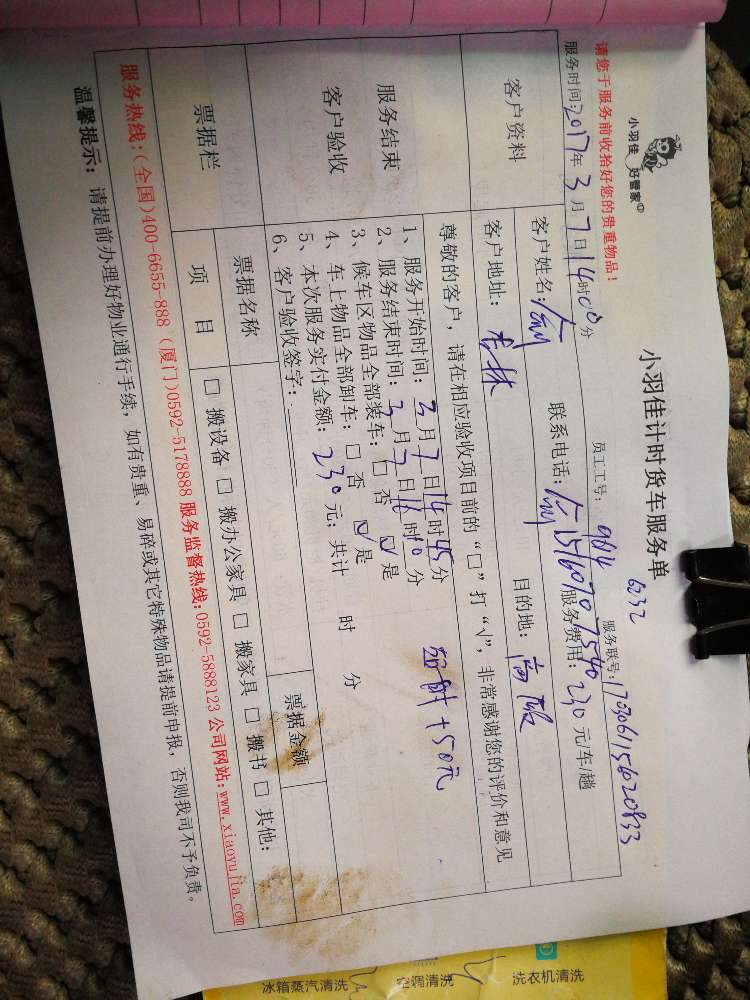 小羽佳 好管家
小羽佳计时货车服务单
6232
请您于服务前收拾好您的贵重物品!
员工工号: 9614 服务联号: 170306115620833
服务时间:2017年3月7日14时00分
服务费用: 230元/车/趟
客户资料
客户姓名:
联系电话: 15160707540
客户地址: 吉林
目的地:
尊敬的客户,请在相应验收项目前的“□”打“√”,非常感谢您的评价和意见
服务结束
客户验收
1、服务开始时间: 3月7日14时45分
2、服务结束时间: 3月7日16时10分
+50元
3、候车区物品全部装车: □ 否 ☑ 是
4、车上物品全部卸车: □ 否 ☑ 是
5、本次服务实付金额: 230元; 共计 时 分
6、客户验收签字:
票据栏
票据名称
票据金额
项目
□ 搬设备 □ 搬办公家具 □ 搬家具 □ 搬书 □ 其他:
服务热线:(全国)400-6655-888 (厦门)0592-5178888 服务监督热线:0592-5888123 公司网站:www.xiaoyujia.com
温馨提示: 请提前办理好物业通行手续,如有贵重、易碎或其它特殊物品请提前申报,否则我司不予负责。
冰箱蒸汽清洗
空调清洗
洗衣机清洗